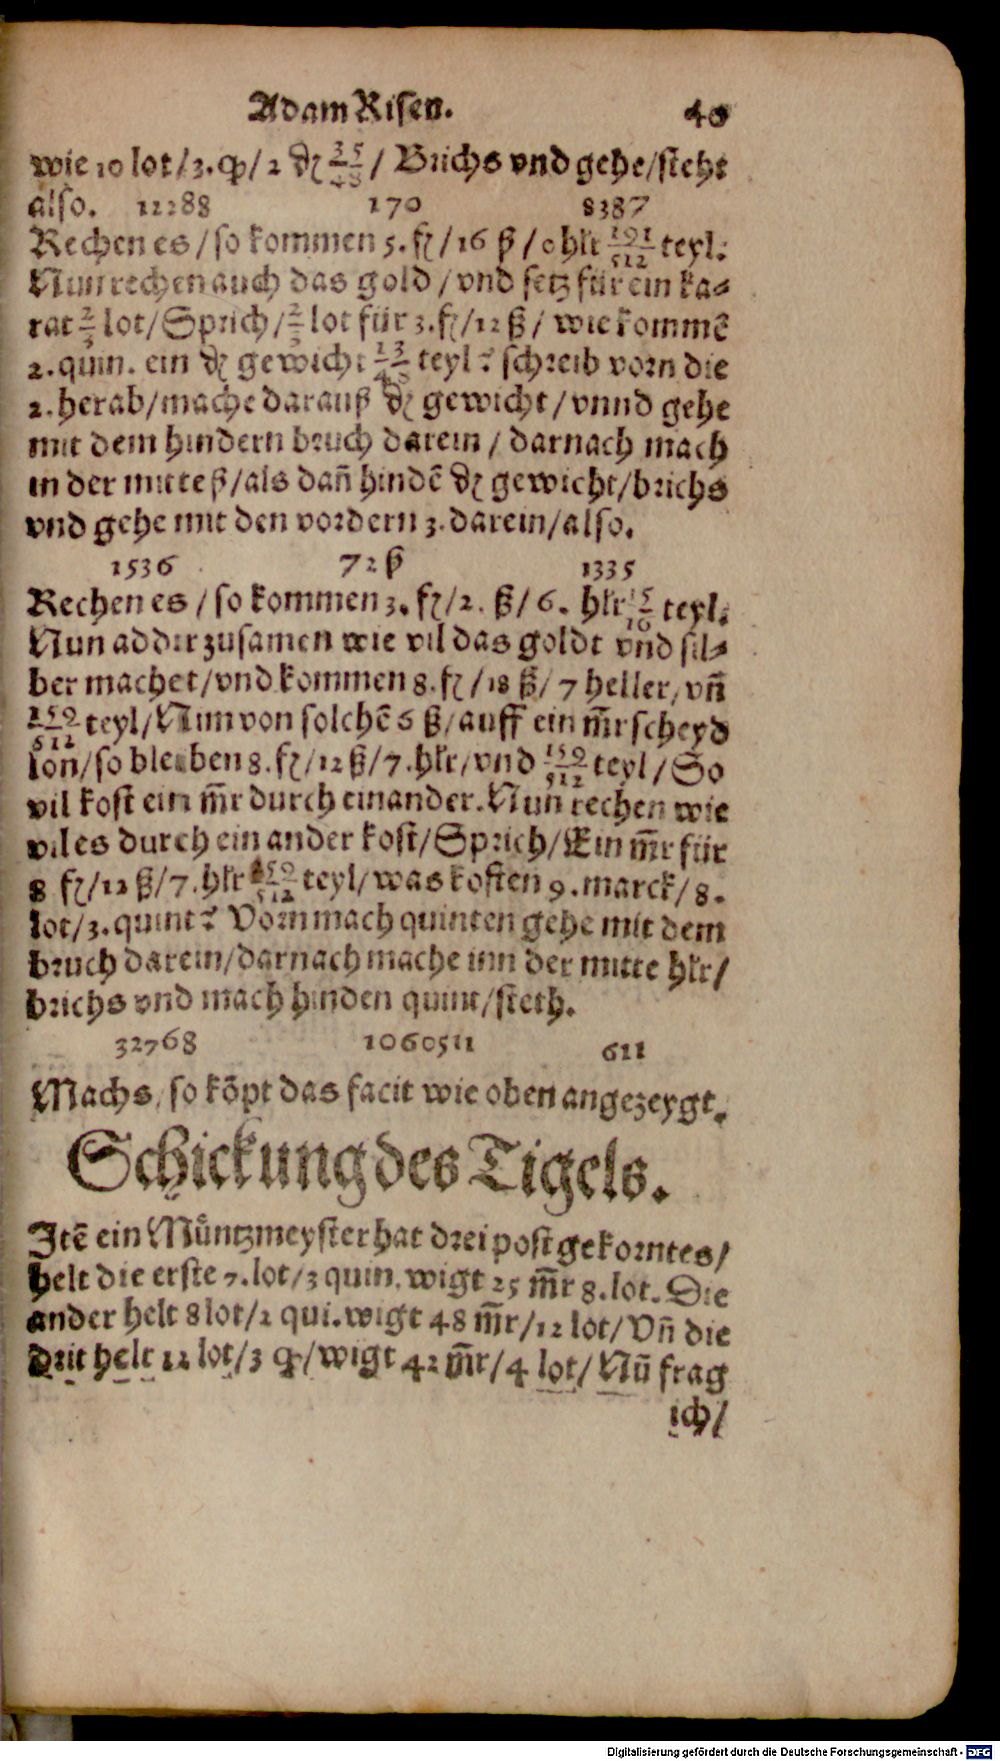 Adam Risen. 40
wie 10 lot/3. qͦ/2 ₰ 35/48/ Brichs vnd gehe/steht
also. 12288 170 8387
Rechen es/so kommen 5. fl/16 ß/0 hlr 191/512 teyl.
Nun rechen auch das gold/vnd setz für ein ka-
rat 2/3 lot/Sprich/2/3 lot für 3. fl/12 ß/ wie kommē
2. quin. ein ₰ gewicht 13/48 teyl? schreib vorn die
2. herab/mache darauß ₰ gewicht/vnnd gehe
mit dem hindern bruch darein/darnach mach
in der mitte ß/als dañ hindē ₰ gewicht/brichs
vnd gehe mit den vordern 3. darein/also.
1536 72 ß 1335
Rechen es/so kommen 3. fl/2. ß/6. hlr 15/16 teyl.
Nun addir zusamen wie vil das goldt vnd sil-
ber machet/vnd kommen 8. fl/18 ß/7 heller/vñ
159/512 teyl/Nim von solchē 6 ß/auff ein m̄r scheyd
lon/so bleiben 8. fl/12 ß/7. hlr/vnd 159/512 teyl/So
vil kost ein m̄r durch einander. Nun rechen wie
vil es durch ein ander kost/Sprich/Ein m̄r für
8 fl/12 ß/7. hlr 159/512 teyl/was kosten 9. marck/8.
lot/3. quint? Vorn mach quinten gehe mit dem
bruch darein/darnach mache inn der mitte hlr/
brichs vnd mach hinden quint/steth.
32768 1060511 611
Machs/so kōpt das facit wie oben angezeygt.
Schickung des Tigels.
Itē ein Müntzmeyster hat drei post gekorntes/
helt die erste 7. lot/3 quin. wigt 25 m̄r 8. lot. Die
ander helt 8 lot/2 qui. wigt 48 m̄r/12 lot/Vñ die
drit helt 12 lot/3 qͦ/wigt 42 m̄r/4 lot/Nū frag
ich/
Digitalisierung gefördert durch die Deutsche Forschungsgemeinschaft - DFG